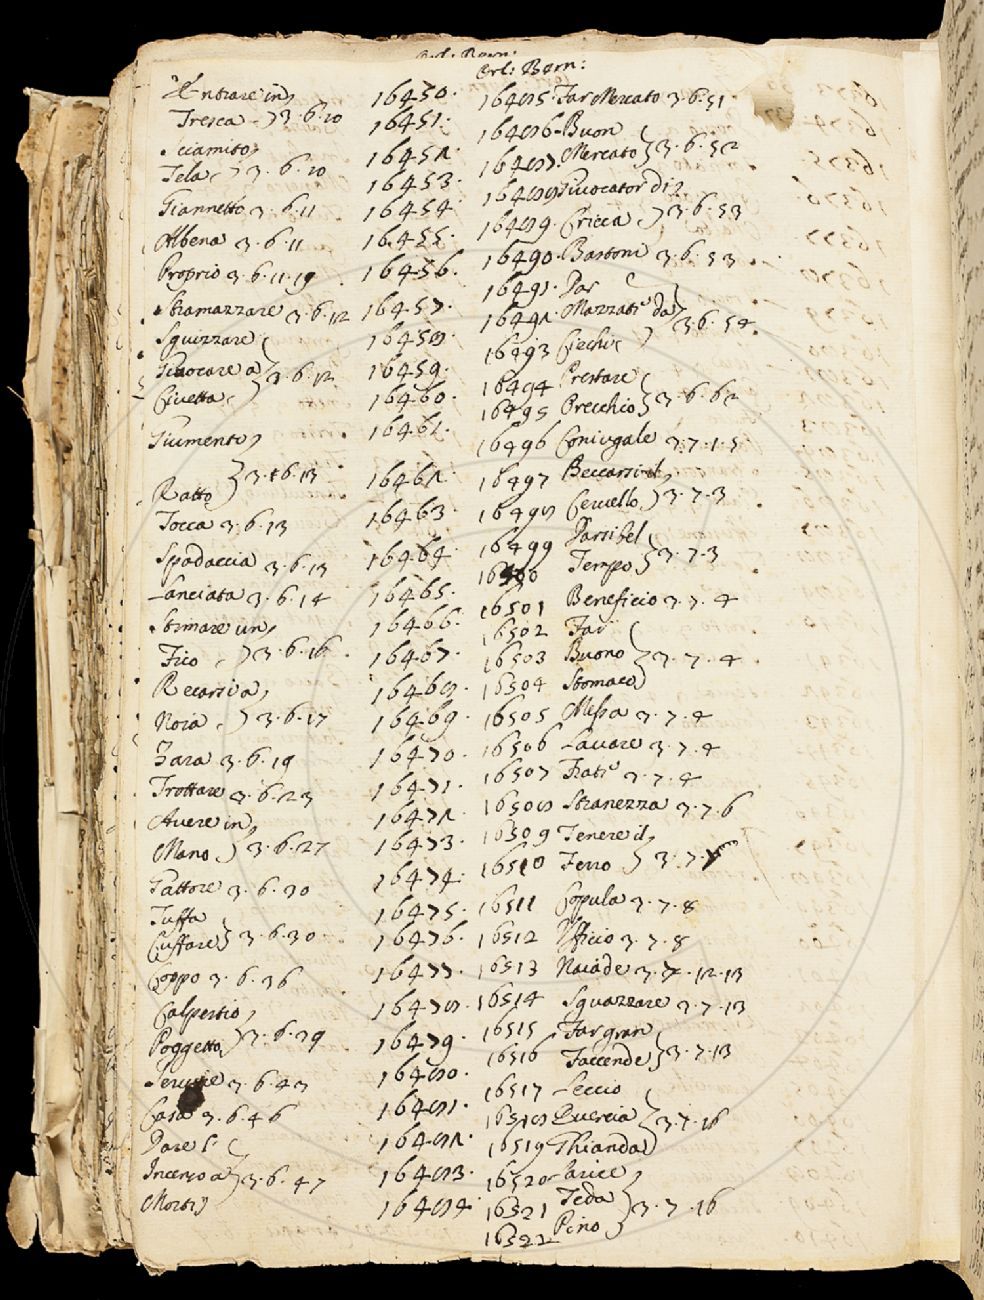 Orl: Bern:
Entrare in
Tresca 3.6.10
Sciamito
Tela 3.6.10
Giannetto 3.6.11
Albena 3.6.11
Proprio 3.6.11.19
Stramazzare 3.6.12
Squizzare
Giuocare a 3.6.12
Civetta
Giumento
3.6.13
Ratto
Tocca 3.6.13
Spadaccia 3.6.13
Lanciata 3.6.14
Stimare un
Fico 3.6.16
Recarsi a
Noia 3.6.17
Zara 3.6.19
Trottare 3.6.23
Avere in
Mano 3.6.27
Fattore 3.6.30
Tuffa
Ciuffare 3.6.30
Coppo 3.6.36
Calpestio
Poggetto 3.6.39
Servire 3.6.43
Casa 3.6.46
Dare l'
Incenso a 3.6.47
Morti
16450.
16451.
16452.
16453.
16454.
16455.
16456.
16457.
16458.
16459.
16460.
16461.
16462.
16463.
16464.
16465.
16466.
16467.
16468.
16469.
16470.
16471.
16472.
16473.
16474.
16475.
16476.
16477.
16478.
16479.
16480.
16481.
16482.
16483.
16484.
Orl: Bern:
16485. Far Mercato 3.6.51
16486. Buon
16487. Mercato 3.6.52
16488 Giuocator di
16489. Cricca 3.6.53
16490. Bastoni 3.6.53
16491. Dar
16492. Mazzati da 3.6.54.
16493 Ciechi
16494 Prestare
16495 Orecchio 3.6.62
16496 Coniugale 3.7.1.5
16497 Beccarsi il
16498 Cervello 3.7.3
16499 Darsi bel
16500 Tempo 3.7.3
16501 Beneficio 3.7.4
16502 Far
16503 Buono 3.7.4
16504 Stomaco
16505 Messa 3.7.4
16506 Lavare 3.7.4
16507 Frati 3.7.4
16508 Stranezza 3.7.6
16509 Tenere il
16510 Ferro 3.7.
16511 Copula 3.7.8
16512 Officio 3.7.8
16513 Naiade 3.7.12.13
16514 Sguazzare 3.7.13
16515 Far gran
16516 Faccende 3.7.13
16517 Leccio
16518 Quercia 3.7.16
16519 Ghianda
16520 Larice
16521 Teda 3.7.16
16522 Pino